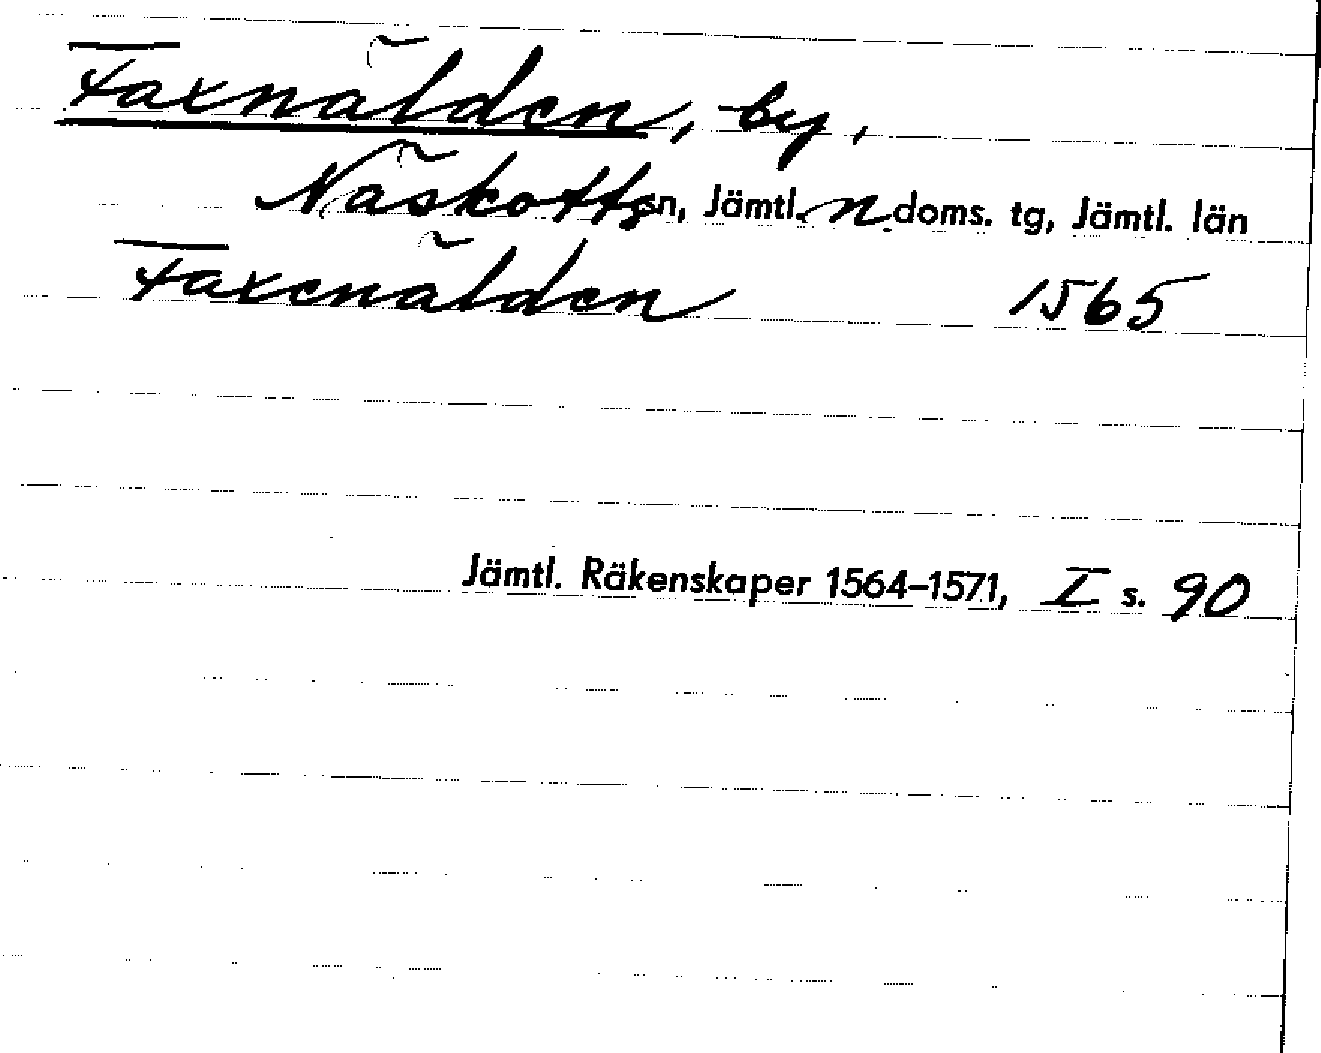 Faxnälden, by,
Näskotts sn, Jämtl. n doms. tg, Jämtl. län
Faxenälden 1565
Jämtl. Räkenskaper 1564–1571, I s. 90